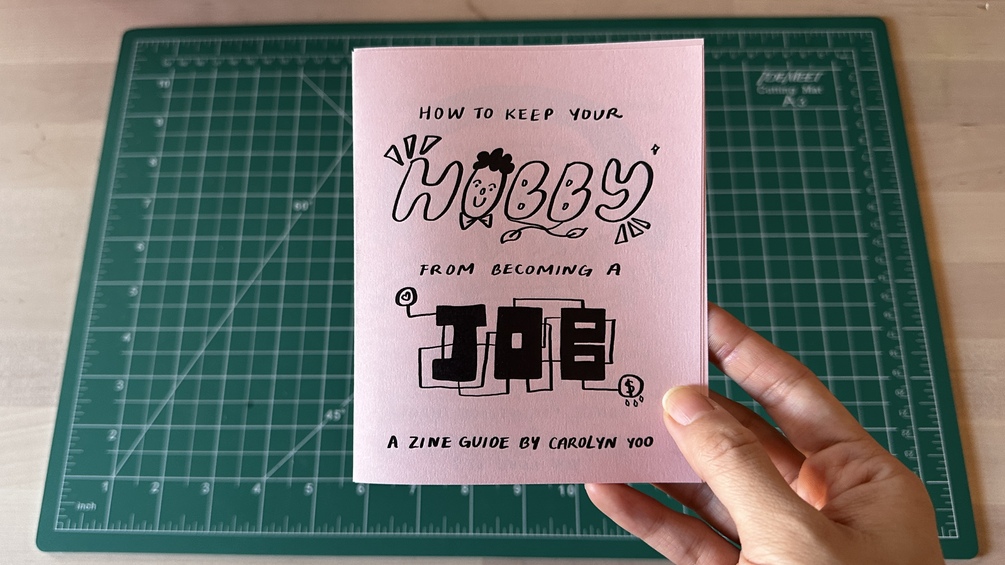 HOW TO KEEP YOUR
HOBBY
FROM BECOMING A
JOB
$
A ZINE GUIDE BY CAROLYN YOO
Cutting Mat
A3
10
9
7
6
5
4
3
2
1
60°
45°
inch
1 2 3 4 5 6 7 8 9 10